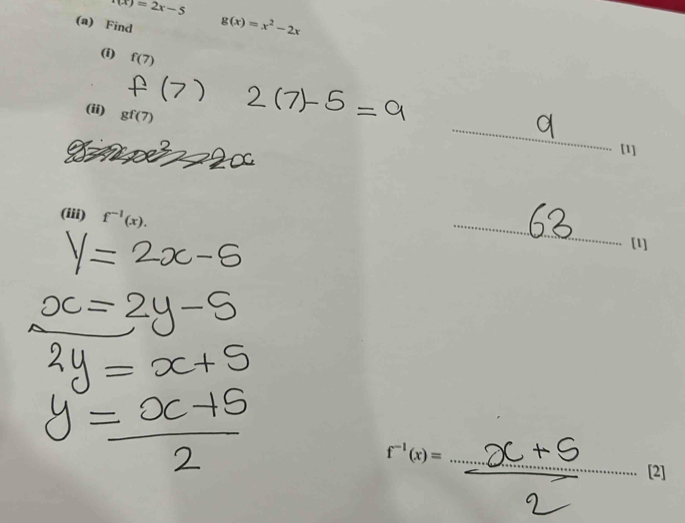 f(x) = 2x − 5 g(x) = x² − 2x
(a) Find
(i) f(7)
f(7) 2(7)-5 = 9
9 [1]
(ii) gf(7)
63 [1]
(iii) f⁻¹(x).
y = 2x-5
x = 2y-5
2y = x+5
y = x+5
2
f⁻¹(x) = x+5 [2]
2